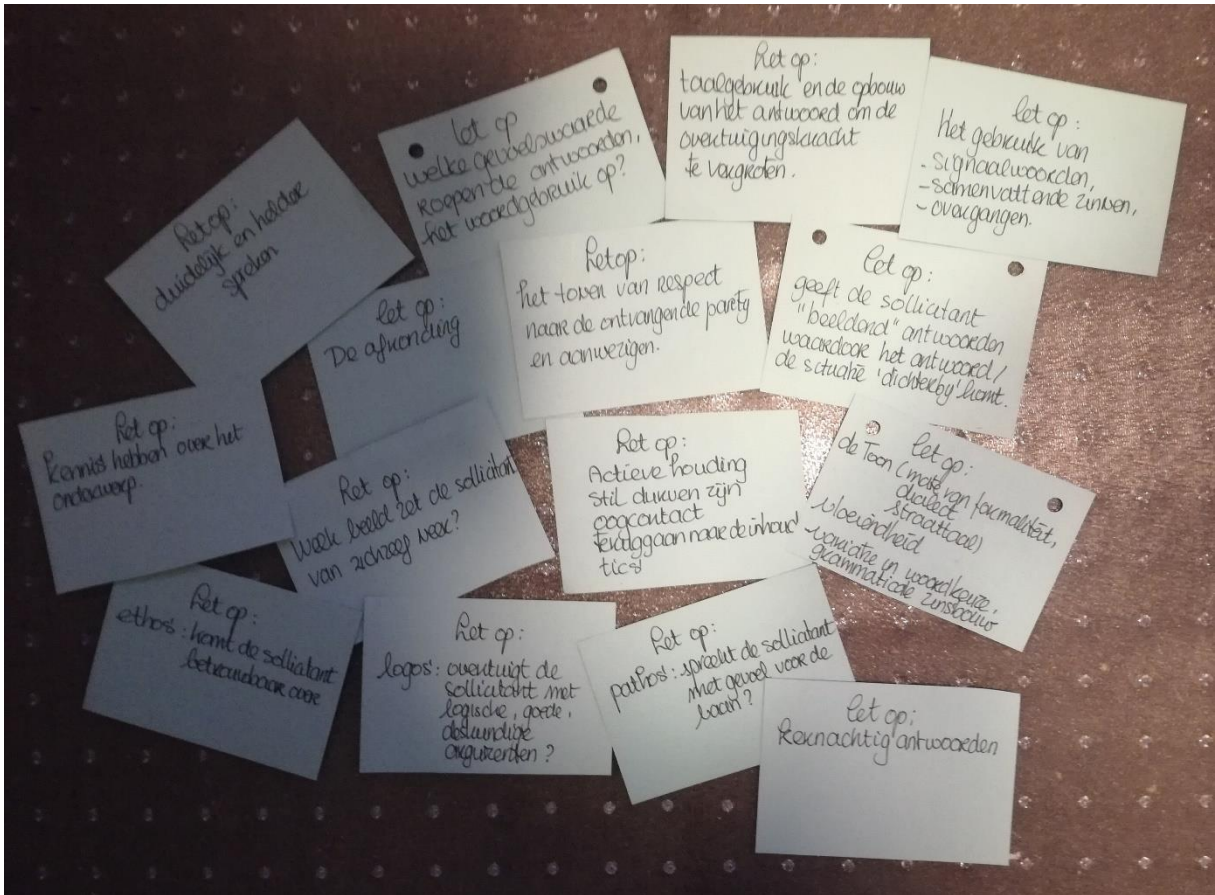 let op:
duidelijk en helder
spreken
let op
welke gevoelswaarde
roepen de antwoorden,
het woordgebruik op?
Let op:
taalgebruik en de opbouw
van het antwoord om de
overtuigingskracht
te vergroten.
let op:
Het gebruik van
- signaalwoorden,
- samenvattende zinnen,
- overgangen.
let op:
De afronding
Let op:
het tonen van respect
naar de ontvangende partij
en aanwezigen.
let op:
geeft de sollicitant
"beeldend" antwoorden
waardoor het antwoord/
de situatie 'dichterbij' komt.
Let op:
kennis hebben over het
onderwerp.
Let op:
Welk beeld zet de sollicitant
van zichzelf neer?
Let op:
Actieve houding
stil durven zijn
oogcontact
teruggaan naar de inhoud
tics!
let op:
de Toon (mate van formaliteit,
dialect
straattaal)
vloeiendheid
variatie in woordkeuze,
grammaticale zinsbouw
Let op:
ethos: komt de sollicitant
betrouwbaar over
Let op:
logos: overtuigt de
sollicitant met
logische, goede,
deskundige
argumenten?
Let op:
pathos: spreekt de sollicitant
met gevoel voor de
baan?
let op:
kernachtig antwoorden